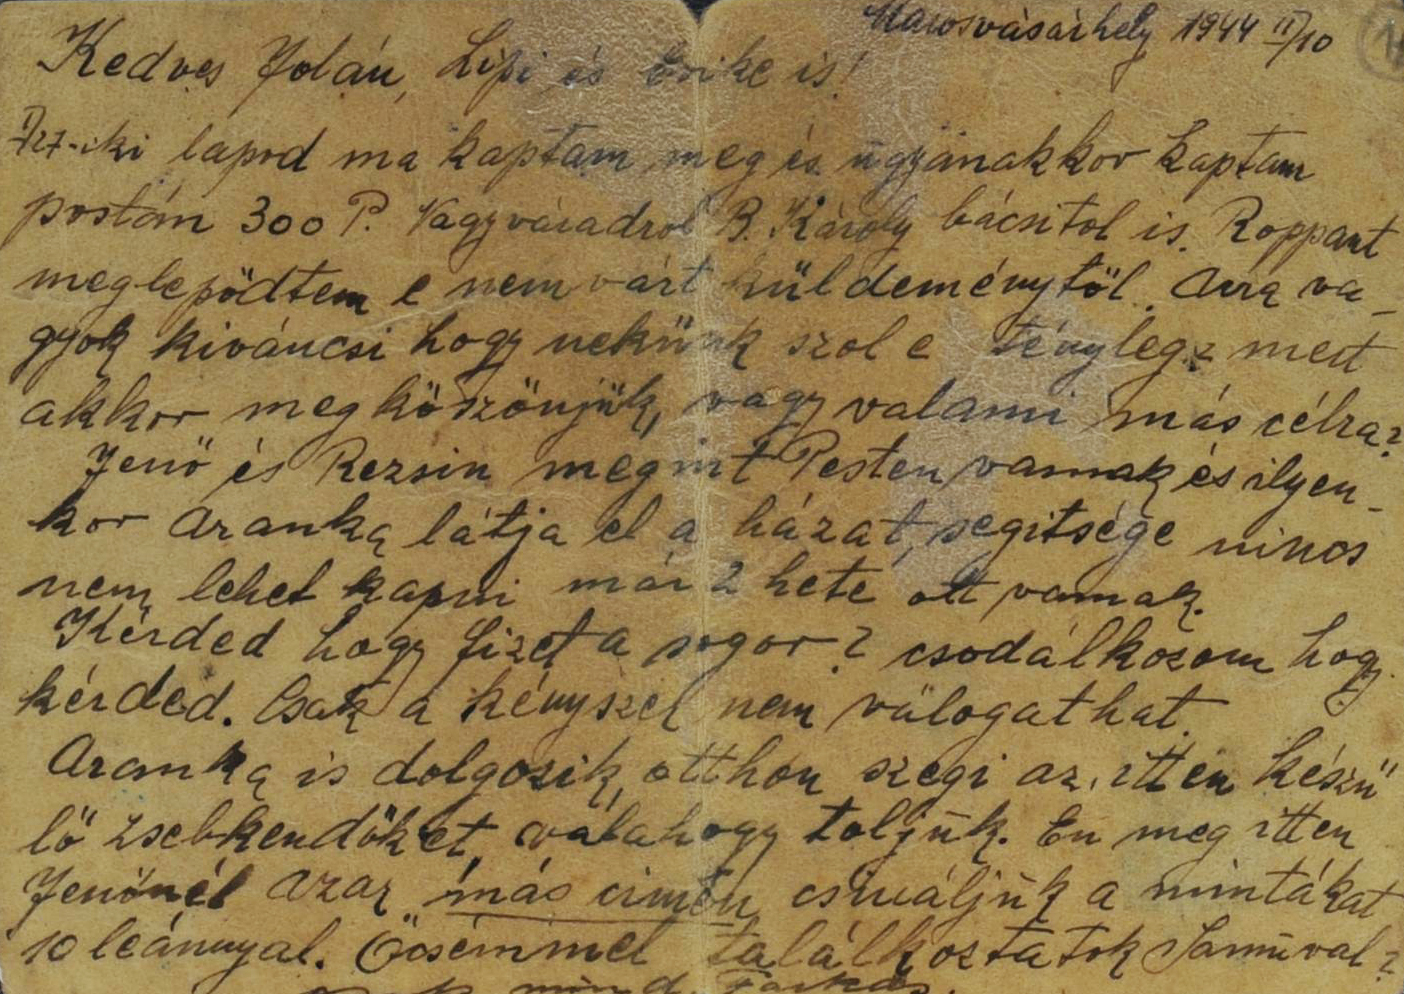 Marosvásárhely 1944 II/10
Kedves Jolán, Lipi és Erike is!
I 27-iki lapod ma kaptam meg és ugyanakkor kaptam
postán 300 P. Nagyváradrol B. Károly bácsitol is. Roppant
meglepödtem e nem várt küldeménytöl. Arra va-
gyok kiváncsi hogy nekünk szol e tényleg, mert
akkor megköszönjük, vagy valami más célra?
Jenö és Rezsin megint Pesten vannak és ilyen-
kor Aranka látja el a házat, segitsége nincs
nem lehet kapni már 2 hete ott vannak.
Kérded hogy fizet a sogor? csodálkozom hogy
kérded. Csak a kényszer nem válogathat.
Aranka is dolgozik, otthon szegi az itten készü
lö zsebkendöket, valahogy toljuk. En meg itten
Jenönél azaz más cimén csináljuk a mintákat
10 leánnyal. Öcsémmel találkoztatok Samuval?
mind Farkas